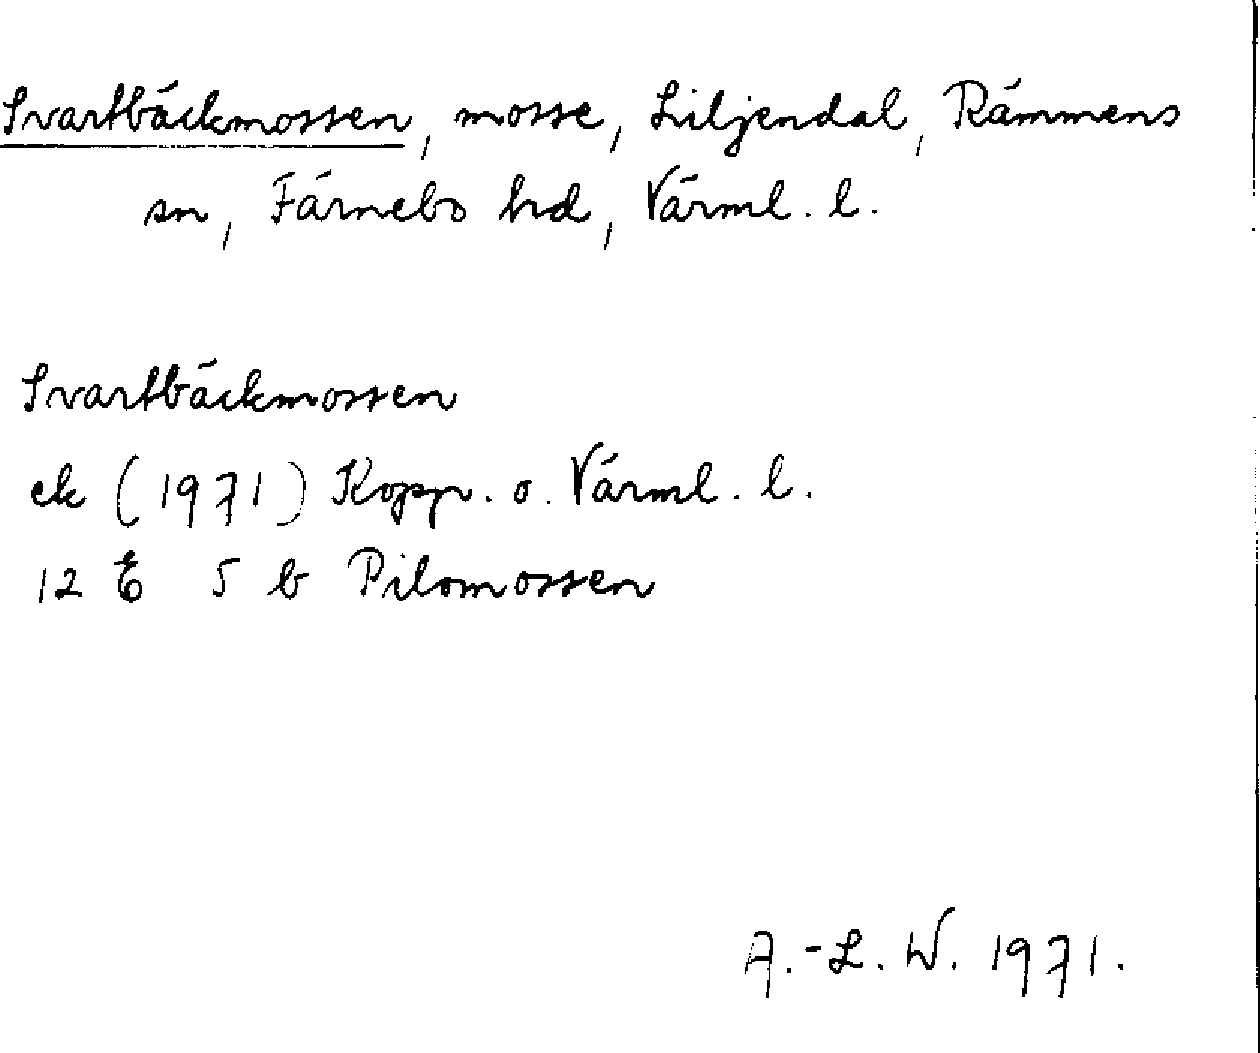 Svartbäckmossen, mosse, Liljendal, Rämmens
sn, Färnebo hd, Värml. l.
Svartbäckmossen
ek (1971) Kopp. o. Värml. l.
12 E 5 b Pilomossen
A.-L. W. 1971.